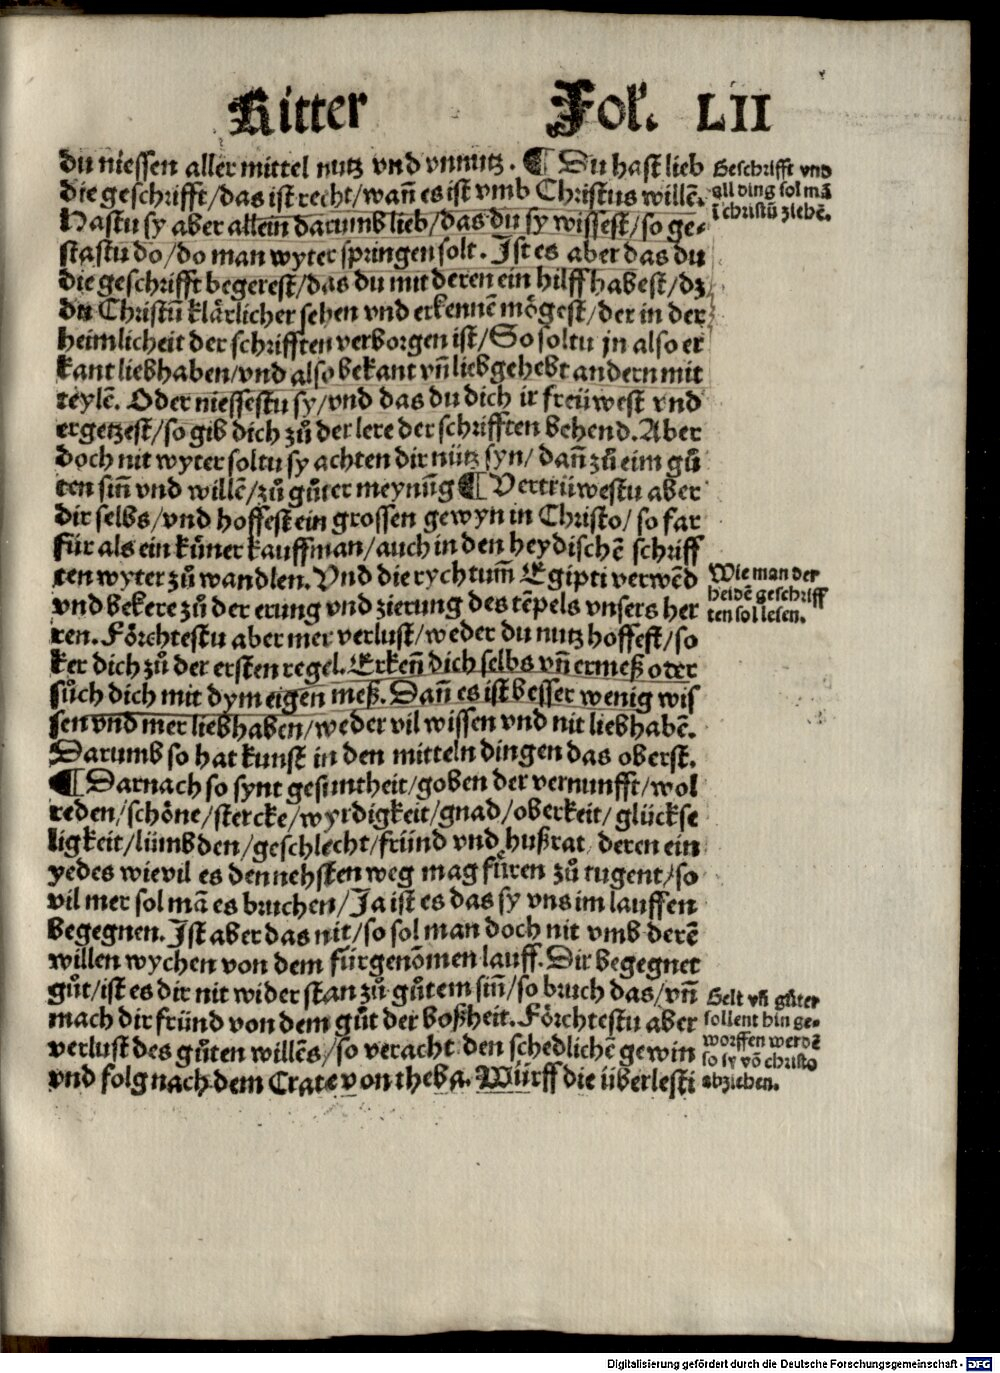 Ritter Fol. LII
du niessen aller mittel nutz vnd vnnutz. ¶ Du hast lieb
die geschrifft/das ist recht/wañ es ist vmb Christus willē.
Hastu sy aber allein darumb lieb/das du sy wissest/so ge⸗
stastu do/do man wyter springen solt. Ist es aber das du
die geschrifft begerest/das du mit deren ein hilff habest/dz
du Christū klärlicher sehen vnd erkennē mögest/der in der
heimlicheit der schrifften verborgen ist/So soltu jn also er
kant liebhaben/vnd also bekant vñ liebgehebt andern mit
teylē. Oder niessestu sy/vnd das du dich ir freüwest vnd
ergetzest/so gib dich zů der lere der schrifften behend. Aber
doch nit wyter soltu sy achten dir nütz syn/dañ zů eim gů
ten siñ vnd willē/zů gůter meynūg ¶ Vertrüwestu aber
dir selbs/vnd hoffest ein grossen gewyn in Christo/so far
für als ein küner kauffman/auch in den heydischē schriff
ten wyter zů wandlen. Vnd die rychtum̄ Egipti verwēd
vnd bekere zů der erung vnd zierung des tēpels vnsers her
ren. Förchtestu aber mer verlust/weder du nutz hoffest/so
ker dich zů der ersten regel. Erkeñ dich selbs vñ ermeß oder
sůch dich mit dym eigen meß. Dañ es ist besser wenig wis
sen vnd mer liebhaben/weder vil wissen vnd nit liebhabē.
Darumb so hat kunst in den mitteln dingen das oberst.
¶ Darnach so synt gesuntheit/goben der vernunfft/wol
reden/schöne/stercke/wyrdigkeit/gnad/oberkeit/glückse
ligkeit/lümbden/geschlecht/fründ vnd hußrat/deren ein
yedes wievil es den nehsten weg mag füren zů tugent/so
vil mer sol mā es bruchen/Ja ist es das sy vns im lauffen
begegnen. Ist aber das nit/so sol man doch nit vmb derē
willen wychen von dem fürgenōmen lauff. Dir begegnet
gůt/ist es dir nit wider stan zů gůtem siñ/so bruch das/vñ
mach dir fründ von dem gůt der boßheit. Förchtestu aber
verlust des gůten willēs/so veracht den schedlichē gewin
vnd folg nach dem Crate von theba. Würff die überlesti
Geschrifft vnd
all ding sol mā
ī christū ziehē.
Wie man der
heidē geschriff
ten sol lesen.
Gelt vñ gůter
sollent hin ge⸗
worffen werdē
so sy vō christo
abziehen.
Digitalisierung gefördert durch die Deutsche Forschungsgemeinschaft - DFG